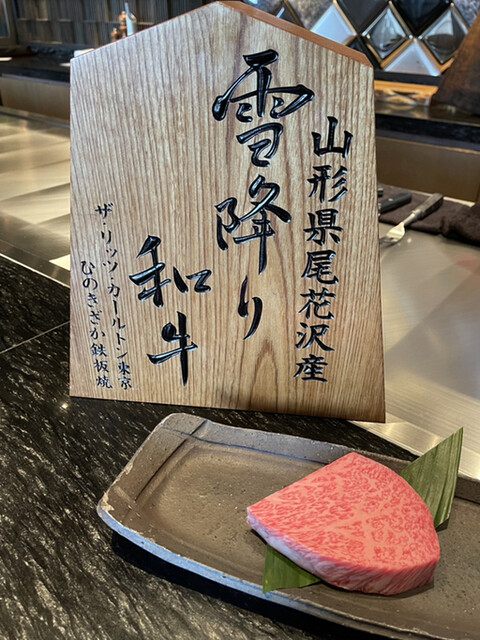 山形県尾花沢産
雪降り
和牛
ザ・リッツ・カールトン東京
ひのきざか鉄板焼